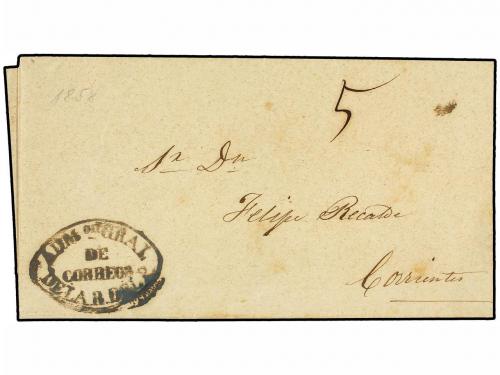 1858
5
Sr. Dn
Felipe Recalde
Corrientes
ADMon. GRAL
DE
CORREOS
DE LA R. DEL P.